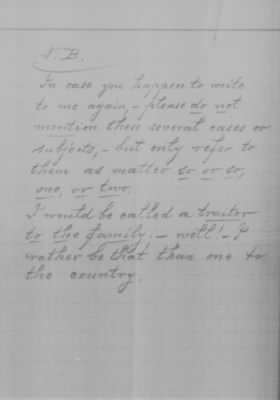 N.B.
In case you happen to write
to me again, - please do not
mention these several cases or
subjects, - but only refer to
them as matter so or so,
one, or two.
I would be called a traitor
to the family. - well! - I
rather be that than one to
the country.